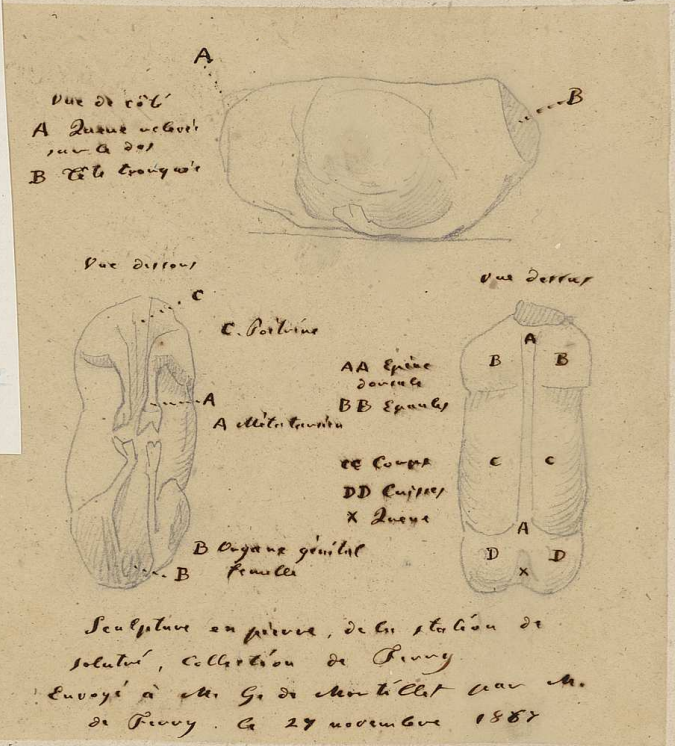 A
B
Vue de côté
A Queue relevée
sur le dos
B Tête tronquée
Vue dessous
C
C. Poitrine
A
A Métatarsien
B Organe génital
femelle
B
Vue dessus
A
B B
AA Epine
dorsale
BB Epaules
C C
CC Corps
DD Cuisses
X Queue
A
D D
x
Sculpture en pierre, de la station de
Solutré, Collection de Ferry
Envoyé à M. G. de Mortillet par M.
de Ferry. le 27 novembre 1867